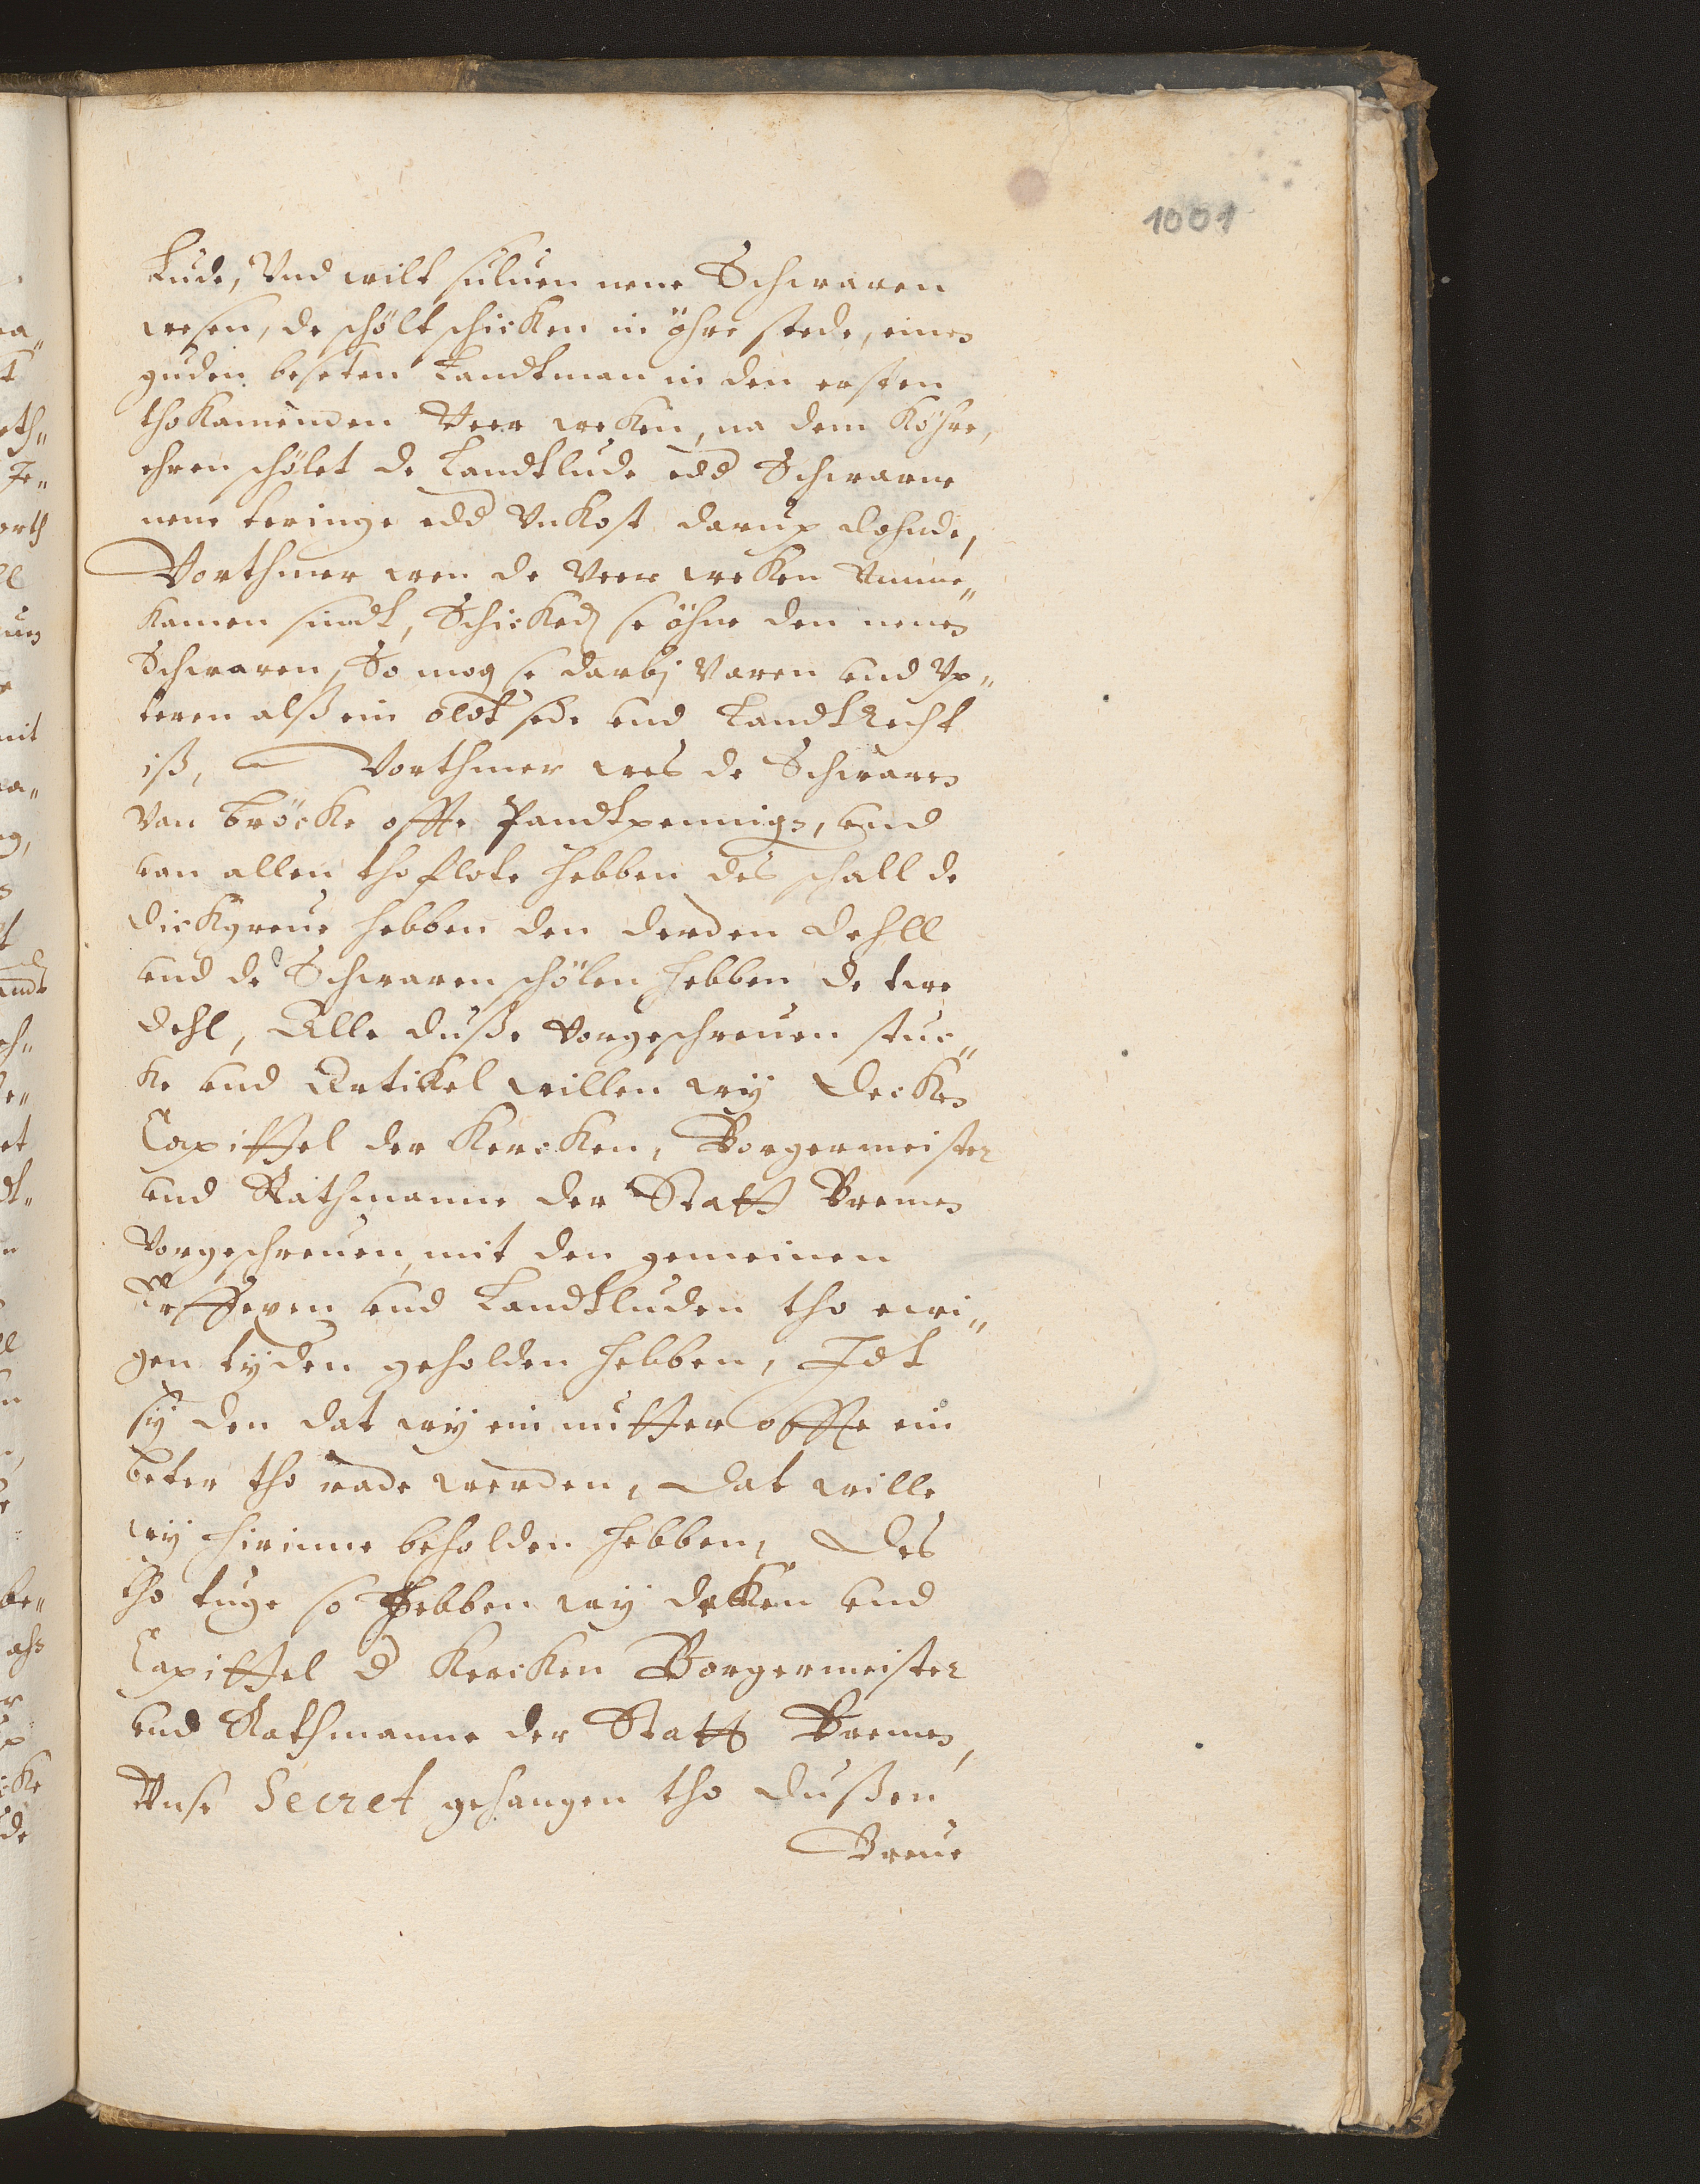 1001
Lude, Vnd wilt suluen nene Schwaren
wesen, de schölt schicken in öhre stede, einen
guden beseten Landtman in den ersten
thokamenden Veer weken, na dem Köhre,
ehren schölet de Landtlude edd Schwarne
nene teringe edd Vnkost darup dohnde,
Vorthmer wen de Veer weken Vmme„
kamen sindt, Schicked se öhne den nenen
Schwaren, So mog se darbj Varen vnd Vp„
teren alß ein oldt sede vnd Landtrecht
iß, Vorthmer wes de Schwaren
Van bröcke offte Pandtpennige, vnd
van allen thoflote hebben des schall de
dickgreue hebben den derden dehll
vnd de Schwaren schölen hebben de twe
dehl, Alle duße Vorgeschreuen stuc„
ke vnd Artikel willen wij Decken
Capittel der Kercken, Borgermeister
vnd Rathmanne der Statt Bremen
Vorgeschreuen, mit den gemeinen
Erffexen vnd Landtluden tho ewi„
gen tyden geholden hebben, Idt
sy den dat wij ein nutter offte ein
beter tho rade werden, Dat wille
wij hirinne beholden hebben, Des
tho tuge so hebben wij deken vnd
Capittel d Kercken Borgermeister
vnd Rathmanne der Statt Bremen,
Vnse Secret gehangen tho dußen
Breue